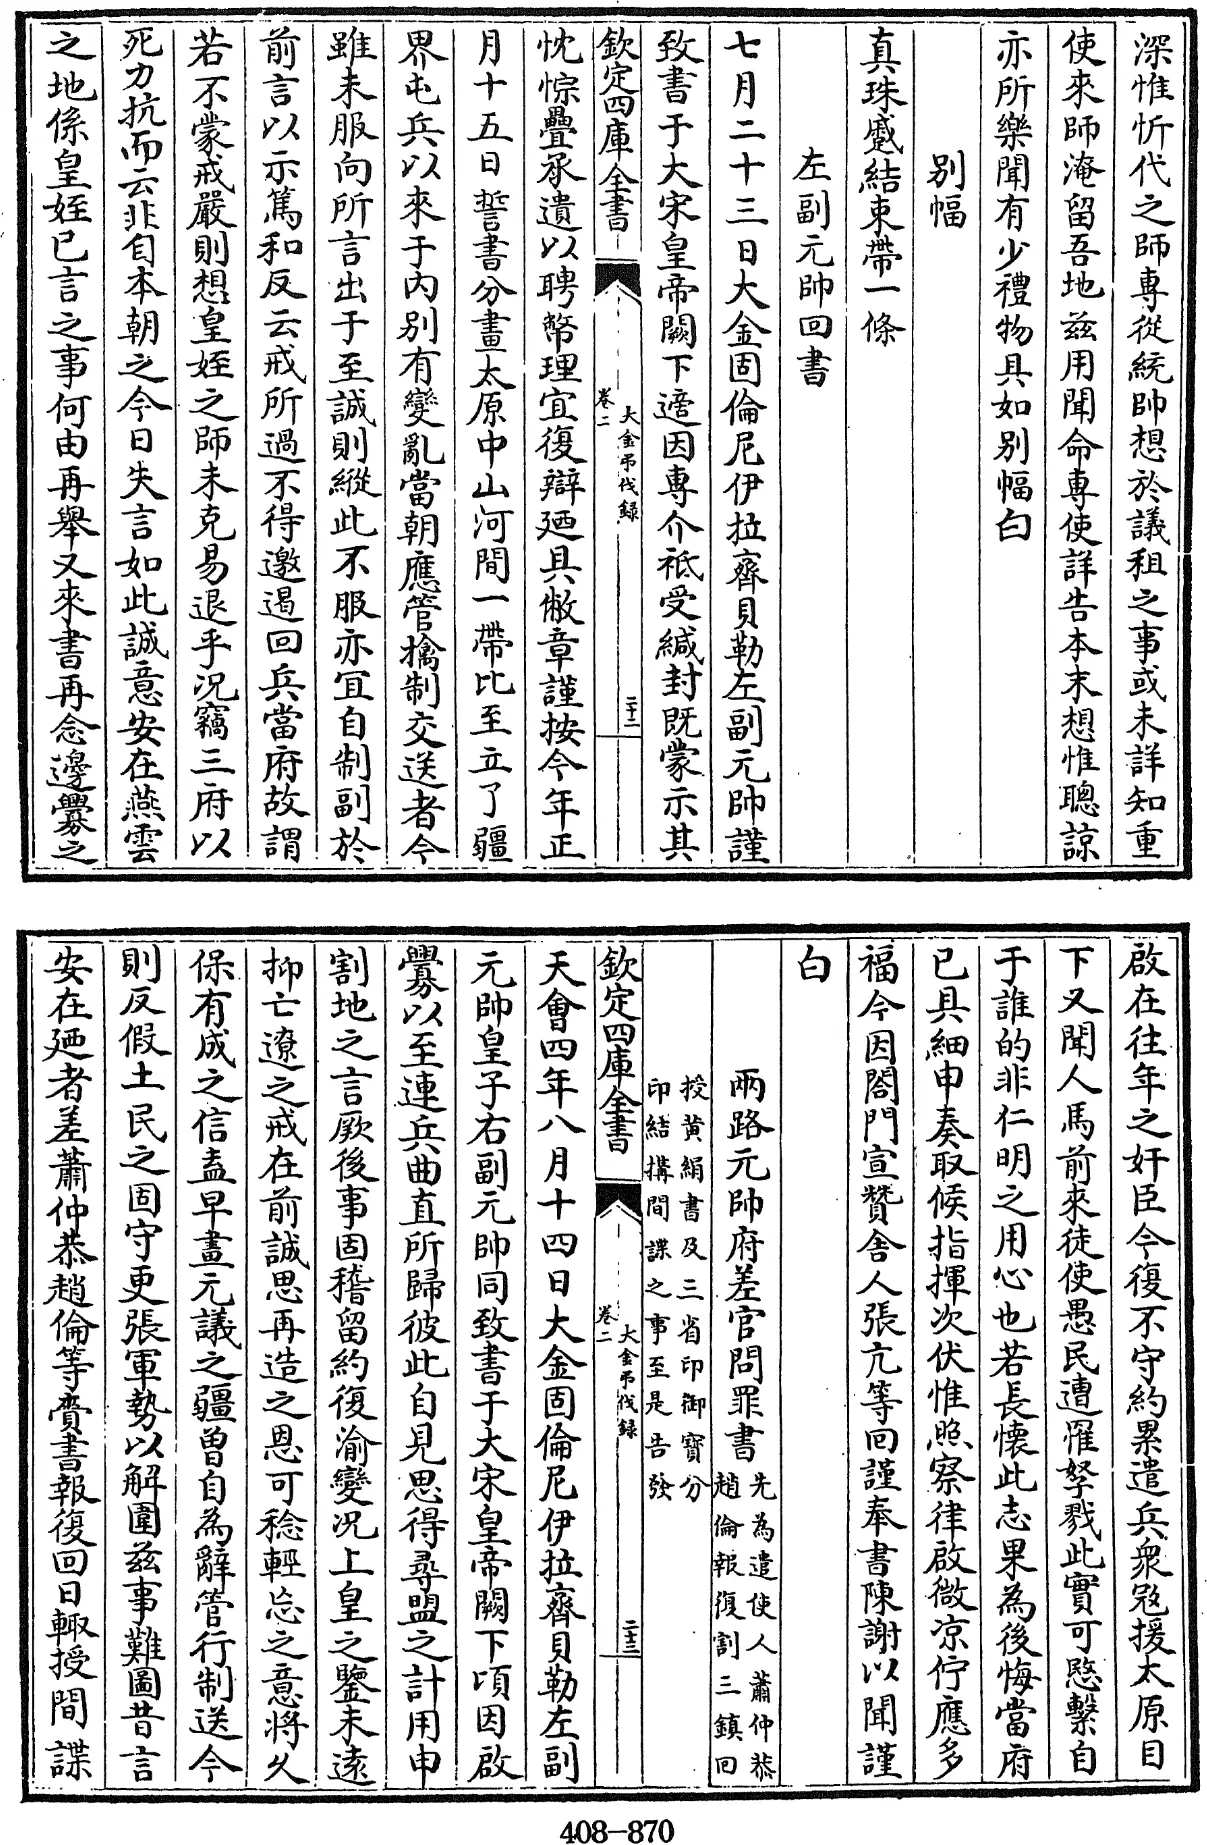 深惟忻代之師專從統帥想於議租之事或未詳知重
使來師淹留吾地兹用聞命專使詳告本末想惟聰諒
亦所樂聞有少禮物具如別幅白
別幅
真珠蹙結束帶一條
左副元帥回書
七月二十三日大金固倫尼伊拉齊貝勒左副元帥謹
致書于大宋皇帝闕下遣因專介祗受緘封既蒙示其
欽定四庫全書
大金弔伐録
卷二
二十二
忱悰疊承遺以聘幣理宜復辯廼具憿章謹按今年正
月十五日誓書分畫太原中山河間一帶比至立了疆
界屯兵以來于内別有變亂當朝應管擒制交送者今
雖未服向所言出于至誠則縱此不服亦宜自制副於
前言以示篤和反云戒所過不得邀遏回兵當府故謂
若不蒙戒嚴則想皇姪之師未克易退乎况竊三府以
死力抗而云非自本朝之今日失言如此誠意安在燕雲
之地係皇姪已言之事何由再舉又來書再念邊釁之
啟在往年之奸臣今復不守約累遣兵衆冦援太原目
下又聞人馬前來徒使愚民遭罹孥戮此實可愍繫自
于誰的非仁明之用心也若長懷此志果為後悔當府
已具細申奏取候指揮次伏惟照察律啟微凉佇應多
福今因閤門宣贊舍人張亢等回謹奉書陳謝以聞謹
白
兩路元帥府差官問罪書先為遣使人蕭仲恭
趙倫報復割三鎮回
授黄絹書及三省印御寳分
印結搆間諜之事至是告發
欽定四庫全書
大金弔伐録
卷二
二十三
天會四年八月十四日大金固倫尼伊拉齊貝勒左副
元帥皇子右副元帥同致書于大宋皇帝闕下頃因啟
釁以至連兵曲直所歸彼此自見思得尋盟之計用申
割地之言厥後事固稽留約復渝變况上皇之鑒未遠
抑亡遼之戒在前誠思再造之恩可稔輕忘之意將久
保有成之信盍早畫元議之疆曽自為辭管行制送今
則反假土民之固守更張軍勢以解圍兹事難圖昔言
安在廼者差蕭仲恭趙倫等賫書報復回日輙授間諜
408-870